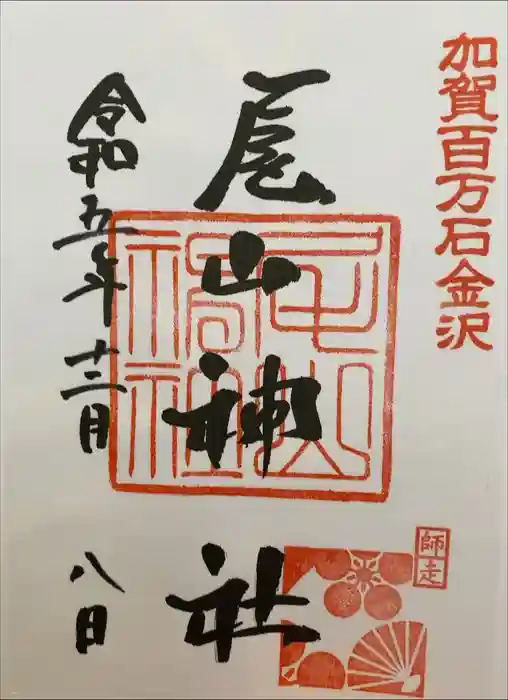 加賀百万石金沢
尾山神社
令和五年十二月
八日
師走